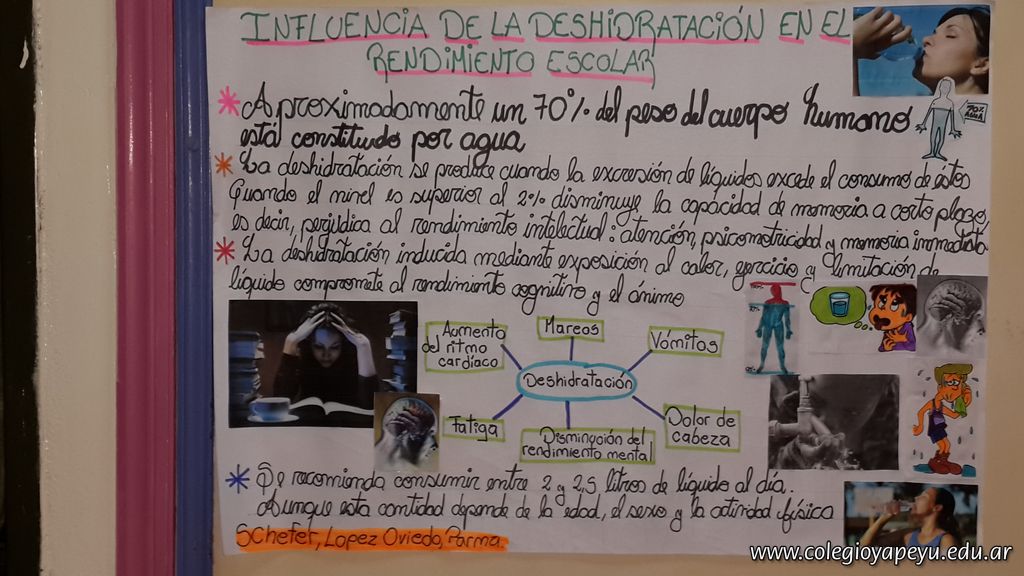 INFLUENCIA DE LA DESHIDRATACIÓN EN EL
RENDIMIENTO ESCOLAR
* Aproximadamente un 70% del peso del cuerpo humano
está constituido por agua
* La deshidratación se produce cuando la excresión de líquidos excede el consumo de éstos
Quando el nivel es superior al 2% disminuye la capacidad de memoria a corto plazo,
es decir, perjudica al rendimiento intelectual: atención, psicomotricidad y memoria inmediata
* La deshidratación inducida mediante exposición al calor, ejercicio y limitación de
líquido compromete al rendimiento cognitivo y el ánimo
Aumento
del ritmo
cardíaco
Mareos
Vómitos
Deshidratación
Fatiga
Disminución del
rendimiento mental
Dolor de
cabeza
* Se recomienda consumir entre 2 y 2,5 litros de líquido al día.
Aunque esta cantidad depende de la edad, el sexo y la actividad física
SChefer, Lopez Oviedo, Parma.
www.colegioyapeyu.edu.ar